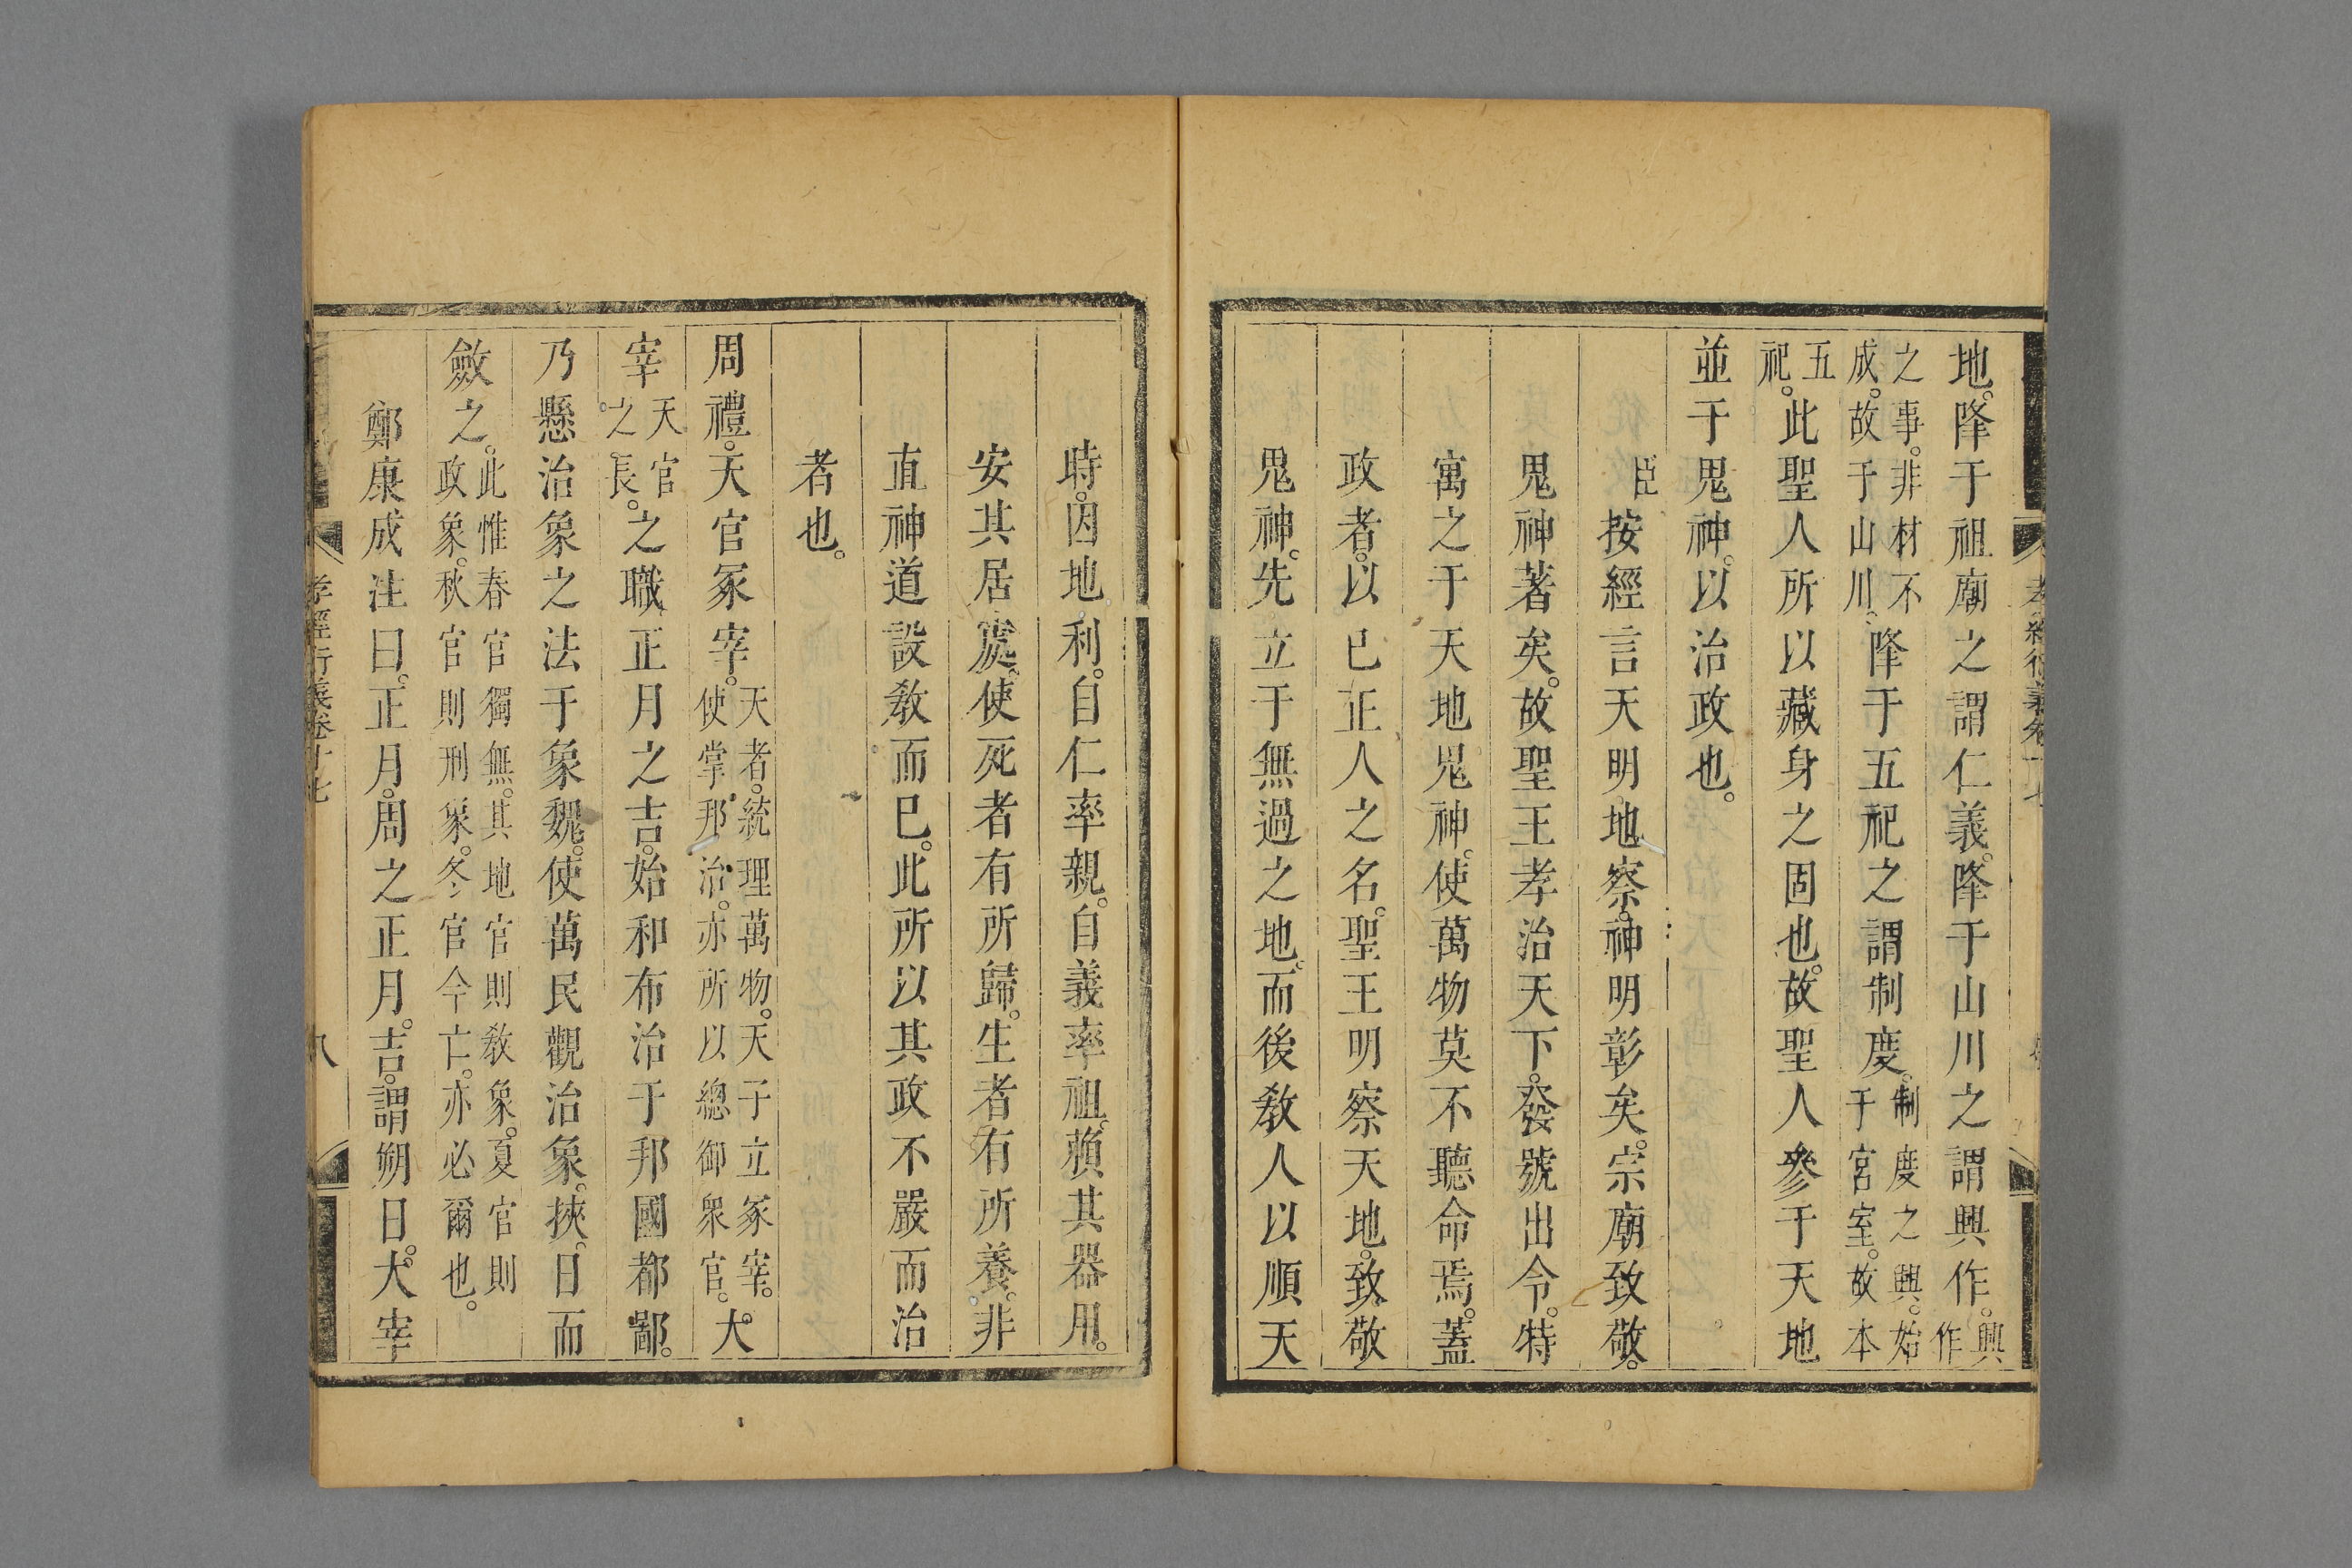 地。降于祖廟之謂仁義。降于山川之謂興作。興作
之事。非材不成。故于山川。降于五祀之謂制度。制度之興。始于宮室。故本
五祀。此聖人所以藏身之固也。故聖人參于天地
並于鬼神。以治政也。
臣按經言天明地察。神明彰矣。宗廟致敬。
鬼神著矣。故聖王孝治天下。發號出令。特
寓之于天地鬼神。使萬物莫不聽命焉。蓋
政者。以已正人之名。聖王明察天地。致敬
鬼神。先立于無過之地。而後教人以順天
時。因地利。自仁率親。自義率祖。蓣其器用。
安其居處。使死者有所歸。生者有所養。非
直神道設教而已。此所以其政不嚴而治
者也。
周禮。天官冢宰。天者。統理萬物。天子立冢宰。使掌邦治。亦所以總御衆官。大
宰天官之長。之職。正月之吉。始和布治于邦國都鄙。
乃懸治象之法于象魏。使萬民觀治象。挾日而
斂之。此惟春官獨無。其地官則教象。夏官則政象。秋官則刑象。冬官今亡。亦必爾也。
鄭康成注曰。正月。周之正月。吉。謂朔日。大宰
孝經衍義卷十七
八